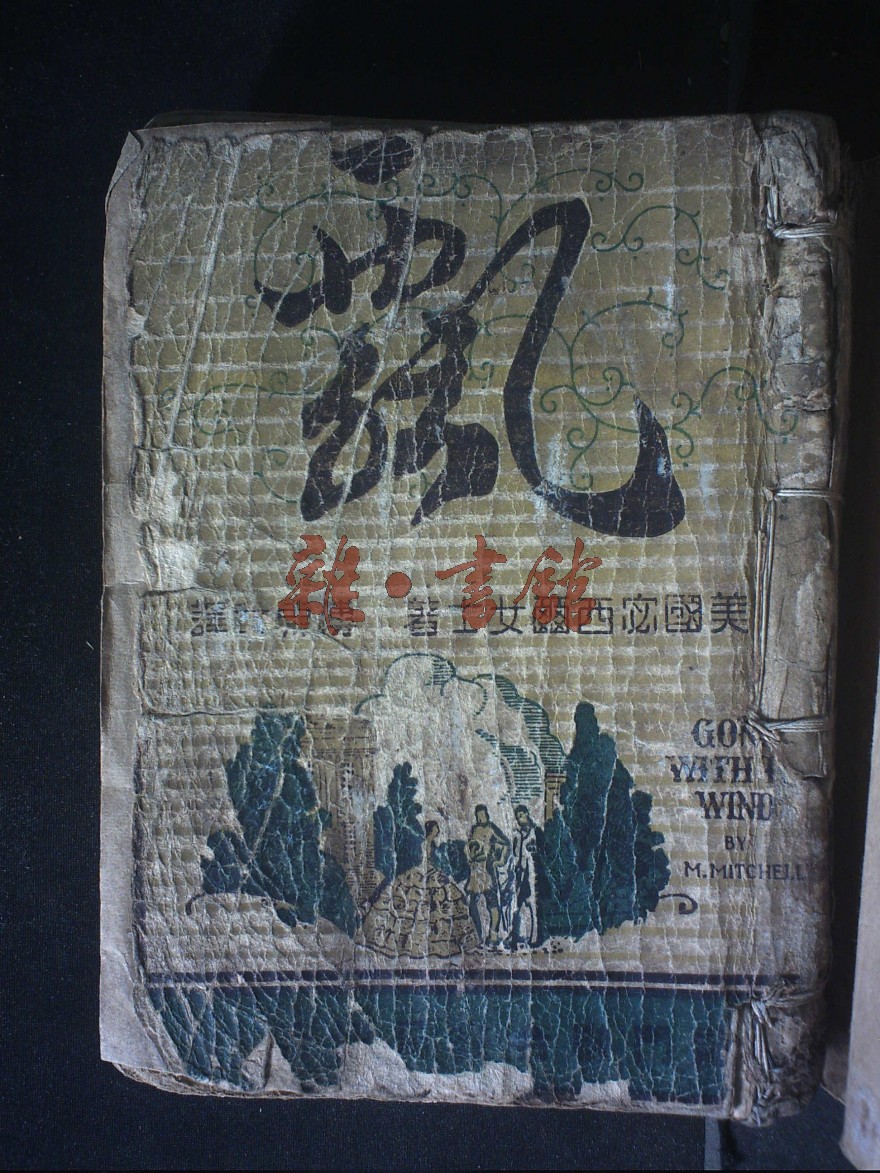 飄
雜·書館
美國宓西爾女士著 傅東華譯
GONE
WITH
WIND
BY
M. MITCHELL